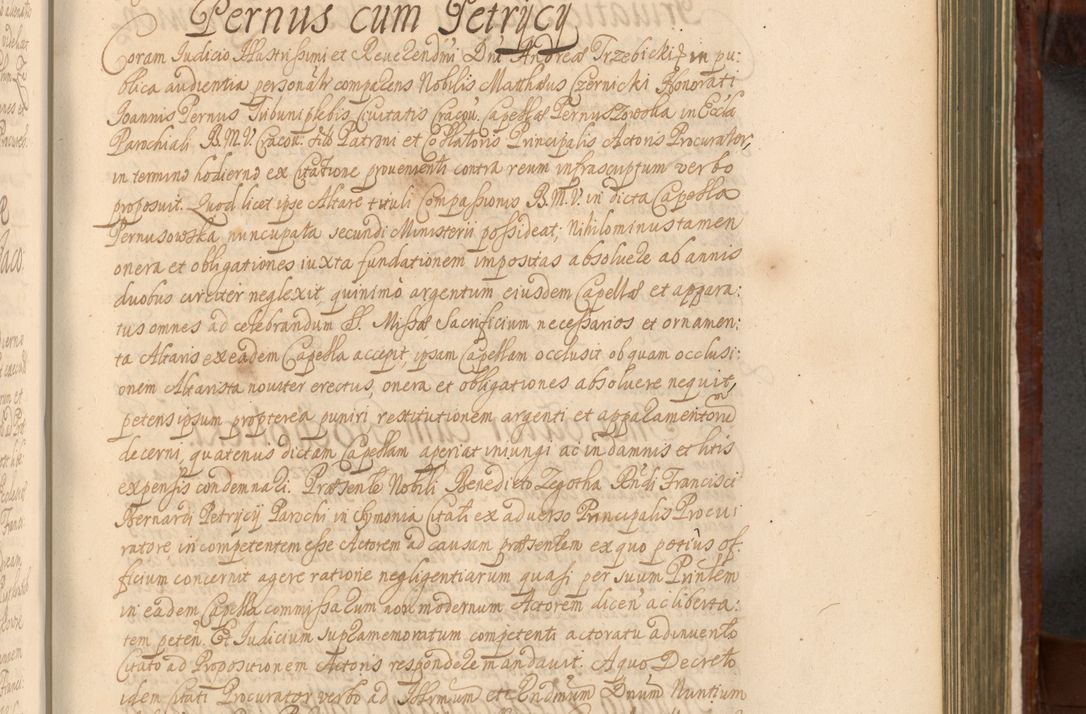 Pernus cum Petrycy
Coram Judicio Illustrissimi et Reverendmi Dni Andreæ Trzebicki Eppi in pu:
blica audientia personalr comparens Nobilis Matthæus Czernicki Honorati
Joannis Pernus Tribuni plebis Civitatis Cracov. Capellæ Pernuszowska in Eccla
Parochiali B.M.V. Cracov. sito Patroni et Collatoris Principalis Actoris Procurator,
in termino hodierno ex Citatione provenienti contra reum infrascriptum verbo
proposuit. Quod licet ipse Altare tituli Compassionis B.M.V. in dicta Capella
Pernusowska nuncupata secundi Ministerii possideat, Nihilominus tamen
onera et obligationes iuxta fundationem impositas absolvere ab annis
duobus circiter neglexit, quinimò argentum eiusdem Capellæ et appara:
tus omnes ad celebrandum S. Missæ Sacrificium necessarios et ornamen:
ta Altaris ex eadem Capella accepit, ipsam Capellam occlusit ob quam occlusi:
onem Altarista noviter erectus, onera et obligationes absolvere nequit,
petens ipsum propterea puniri restitutionem argenti et apparamentorũ
decerni, quatenus dictam Capellam aperiat iniungi ac in damnis et litis
expensis condemnari. Præsente Nobili Benedicto Zegotha Rndi Francisci
Bernardi Petrycy Parochi in Symonia Citati ex adverso Principalis Procu:
ratore in competentem esse Actorem ad causam præsentem ex quo potius of:
ficium concernit agere ratione negligentiarum quasi per suum Prinlem
in eadem Capella commissarum non modernum Actorem dicen. ac liberta:
tem peten. Et Judicium supramemoratum competenti actoratu adinvento
Citato ad Propositionem Actoris respondere mandavit. A quo Decreto
idem Citati Procurator verbo ad Illrmum et Rndmum Dnum Nuntium